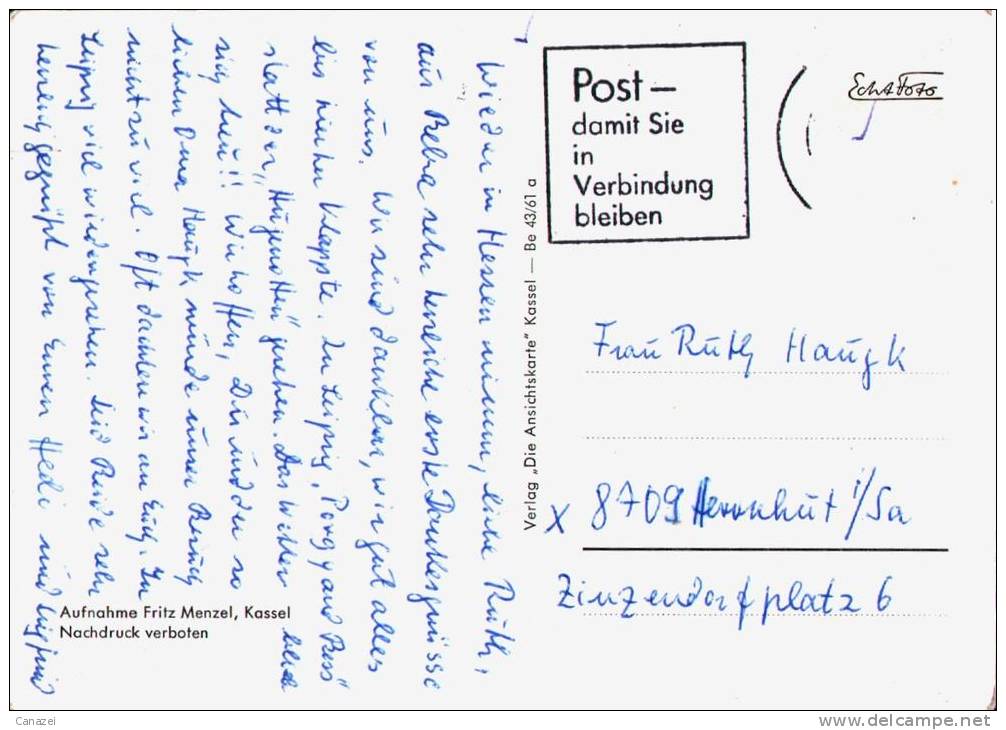 Wieder in Hessen nimm, liebe Ruth,
aus Bebra sehr herzliche erste Dankesgrüsse
von uns. Wir sind dankbar, wie gut alles
bis hierher klappte. In Leipzig „Porgy and Bess"
statt der „Hugenotten" gesehen. Das Wetter blieb
sich treu!! Wir hoffen, Dir und der so
lieben Oma Haugk würde unser Besuch
nicht zu viel. Oft dachten wir an Euch. In
Leipzig viel wiedergesehen. Seid Beide sehr
herzlich gegrüßt von Euren Hedi und
Aufnahme Fritz Menzel, Kassel
Nachdruck verboten
Verlag „Die Ansichtskarte" Kassel — Be 43/61 a
Post —
damit Sie
in
Verbindung
bleiben
Echt Foto
Frau Ruth Haugk
X 8709 Herrnhut i/Sa
Zinzendorfplatz 6
Canazei
www.delcampe.net